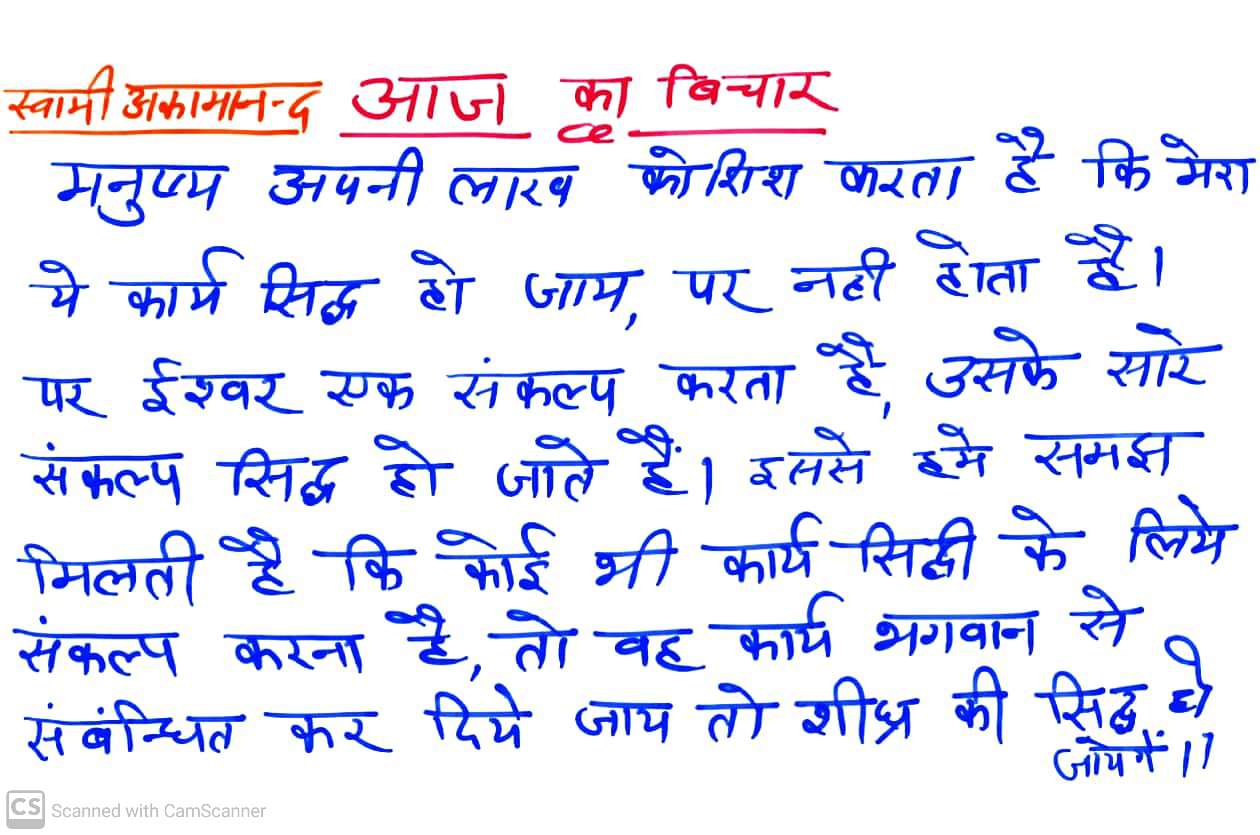 स्वामी अकामानन्द आज का बिचार
मनुष्य अपनी लाख कोशिश करता है कि मेरा
ये कार्य सिद्ध हो जाय, पर नही होता है।
पर ईश्वर एक संकल्प करता है, उसके सारे
संकल्प सिद्ध हो जाते हैं। इससे हमे समझ
मिलती है कि कोई भी कार्य सिद्धी के लिये
संकल्प करना है, तो वह कार्य भगवान से
संबंन्धित कर दिये जाय तो शीघ्र की सिद्ध हो
जायेगें।।
CS Scanned with CamScanner